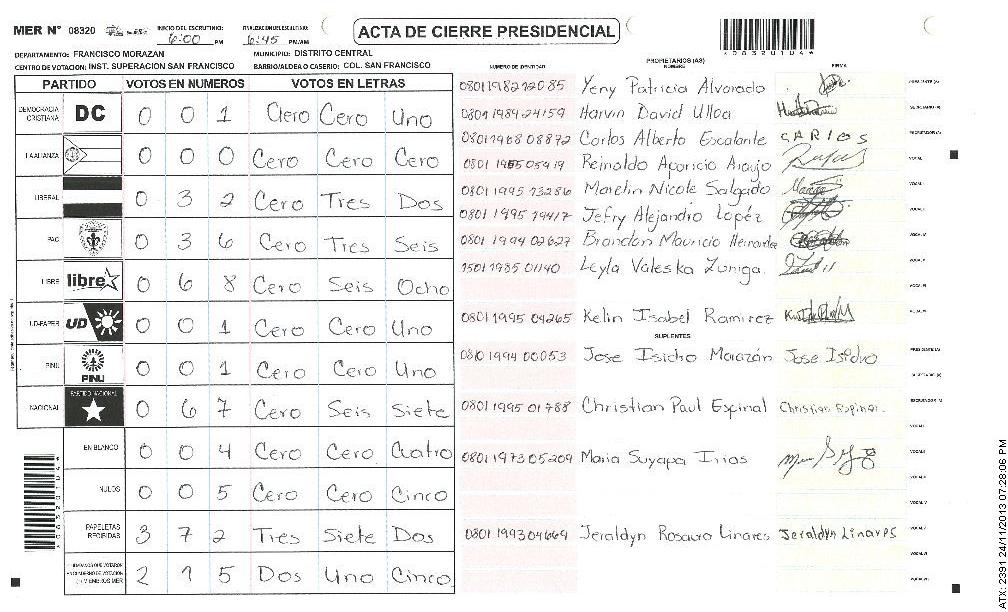 MER N° 08320 INICIO DEL ESCRUTINIO: 6:00 PM FINALIZACION DEL ESCRUTINIO: 6:45 PM/AM ACTA DE CIERRE PRESIDENCIAL
DEPARTAMENTO: FRANCISCO MORAZAN MUNICIPIO: DISTRITO CENTRAL
CENTRO DE VOTACION: INST. SUPERACION SAN FRANCISCO BARRIO/ALDEA O CASERIO: COL. SAN FRANCISCO
PARTIDO VOTOS EN NUMEROS VOTOS EN LETRAS
DEMOCRACIA CRISTIANA DC 0 0 1 Cero Cero Uno
LA ALIANZA 0 0 0 Cero Cero Cero
LIBERAL 0 3 2 Cero Tres Dos
PAC 0 3 6 Cero Tres Seis
LIBRE libre 0 6 8 Cero Seis Ocho
UD-FAPER UD 0 0 1 Cero Cero Uno
PINU PINU 0 0 1 Cero Cero Uno
NACIONAL PARTIDO NACIONAL 0 6 7 Cero Seis Siete
EN BLANCO 0 0 4 Cero Cero Cuatro
NULOS 0 0 5 Cero Cero Cinco
PAPELETAS RECIBIDAS 3 7 2 Tres Siete Dos
2 1 5 Dos Uno Cinco
NUMERO DE IDENTIDAD PROPIETARIOS (AS) NOMBRE FIRMA
Yeny Patricia Alvarado
Harvin David Ulloa
0801 1968 08872 Carlos Alberto Escalante CARlOS
Reinaldo Aparicio Araujo
0801 1995 13286 Marelin Nicole Salgado
0801 1995 19417 Jefry Alejandro Lopéz
0801 1994 02627 Brandon Mauricio
1501 1985 01140 Leyla Valeska Zuniga
0801 1995 04265 Kelin Isabel Ramirez
SUPLENTES
0801 1994 00053 Jose Isidro Morazán Jose Isidro
0801 1995 01788 Christian Paul Espinal Christian Espinal
0801 1973 05209 Maria Suyapa Irias
0801 1993 04669 Jeraldyn Rosaura Linares Jeraldyn Linares
ATX: 2391 24/11/2013 07:28:06 PM